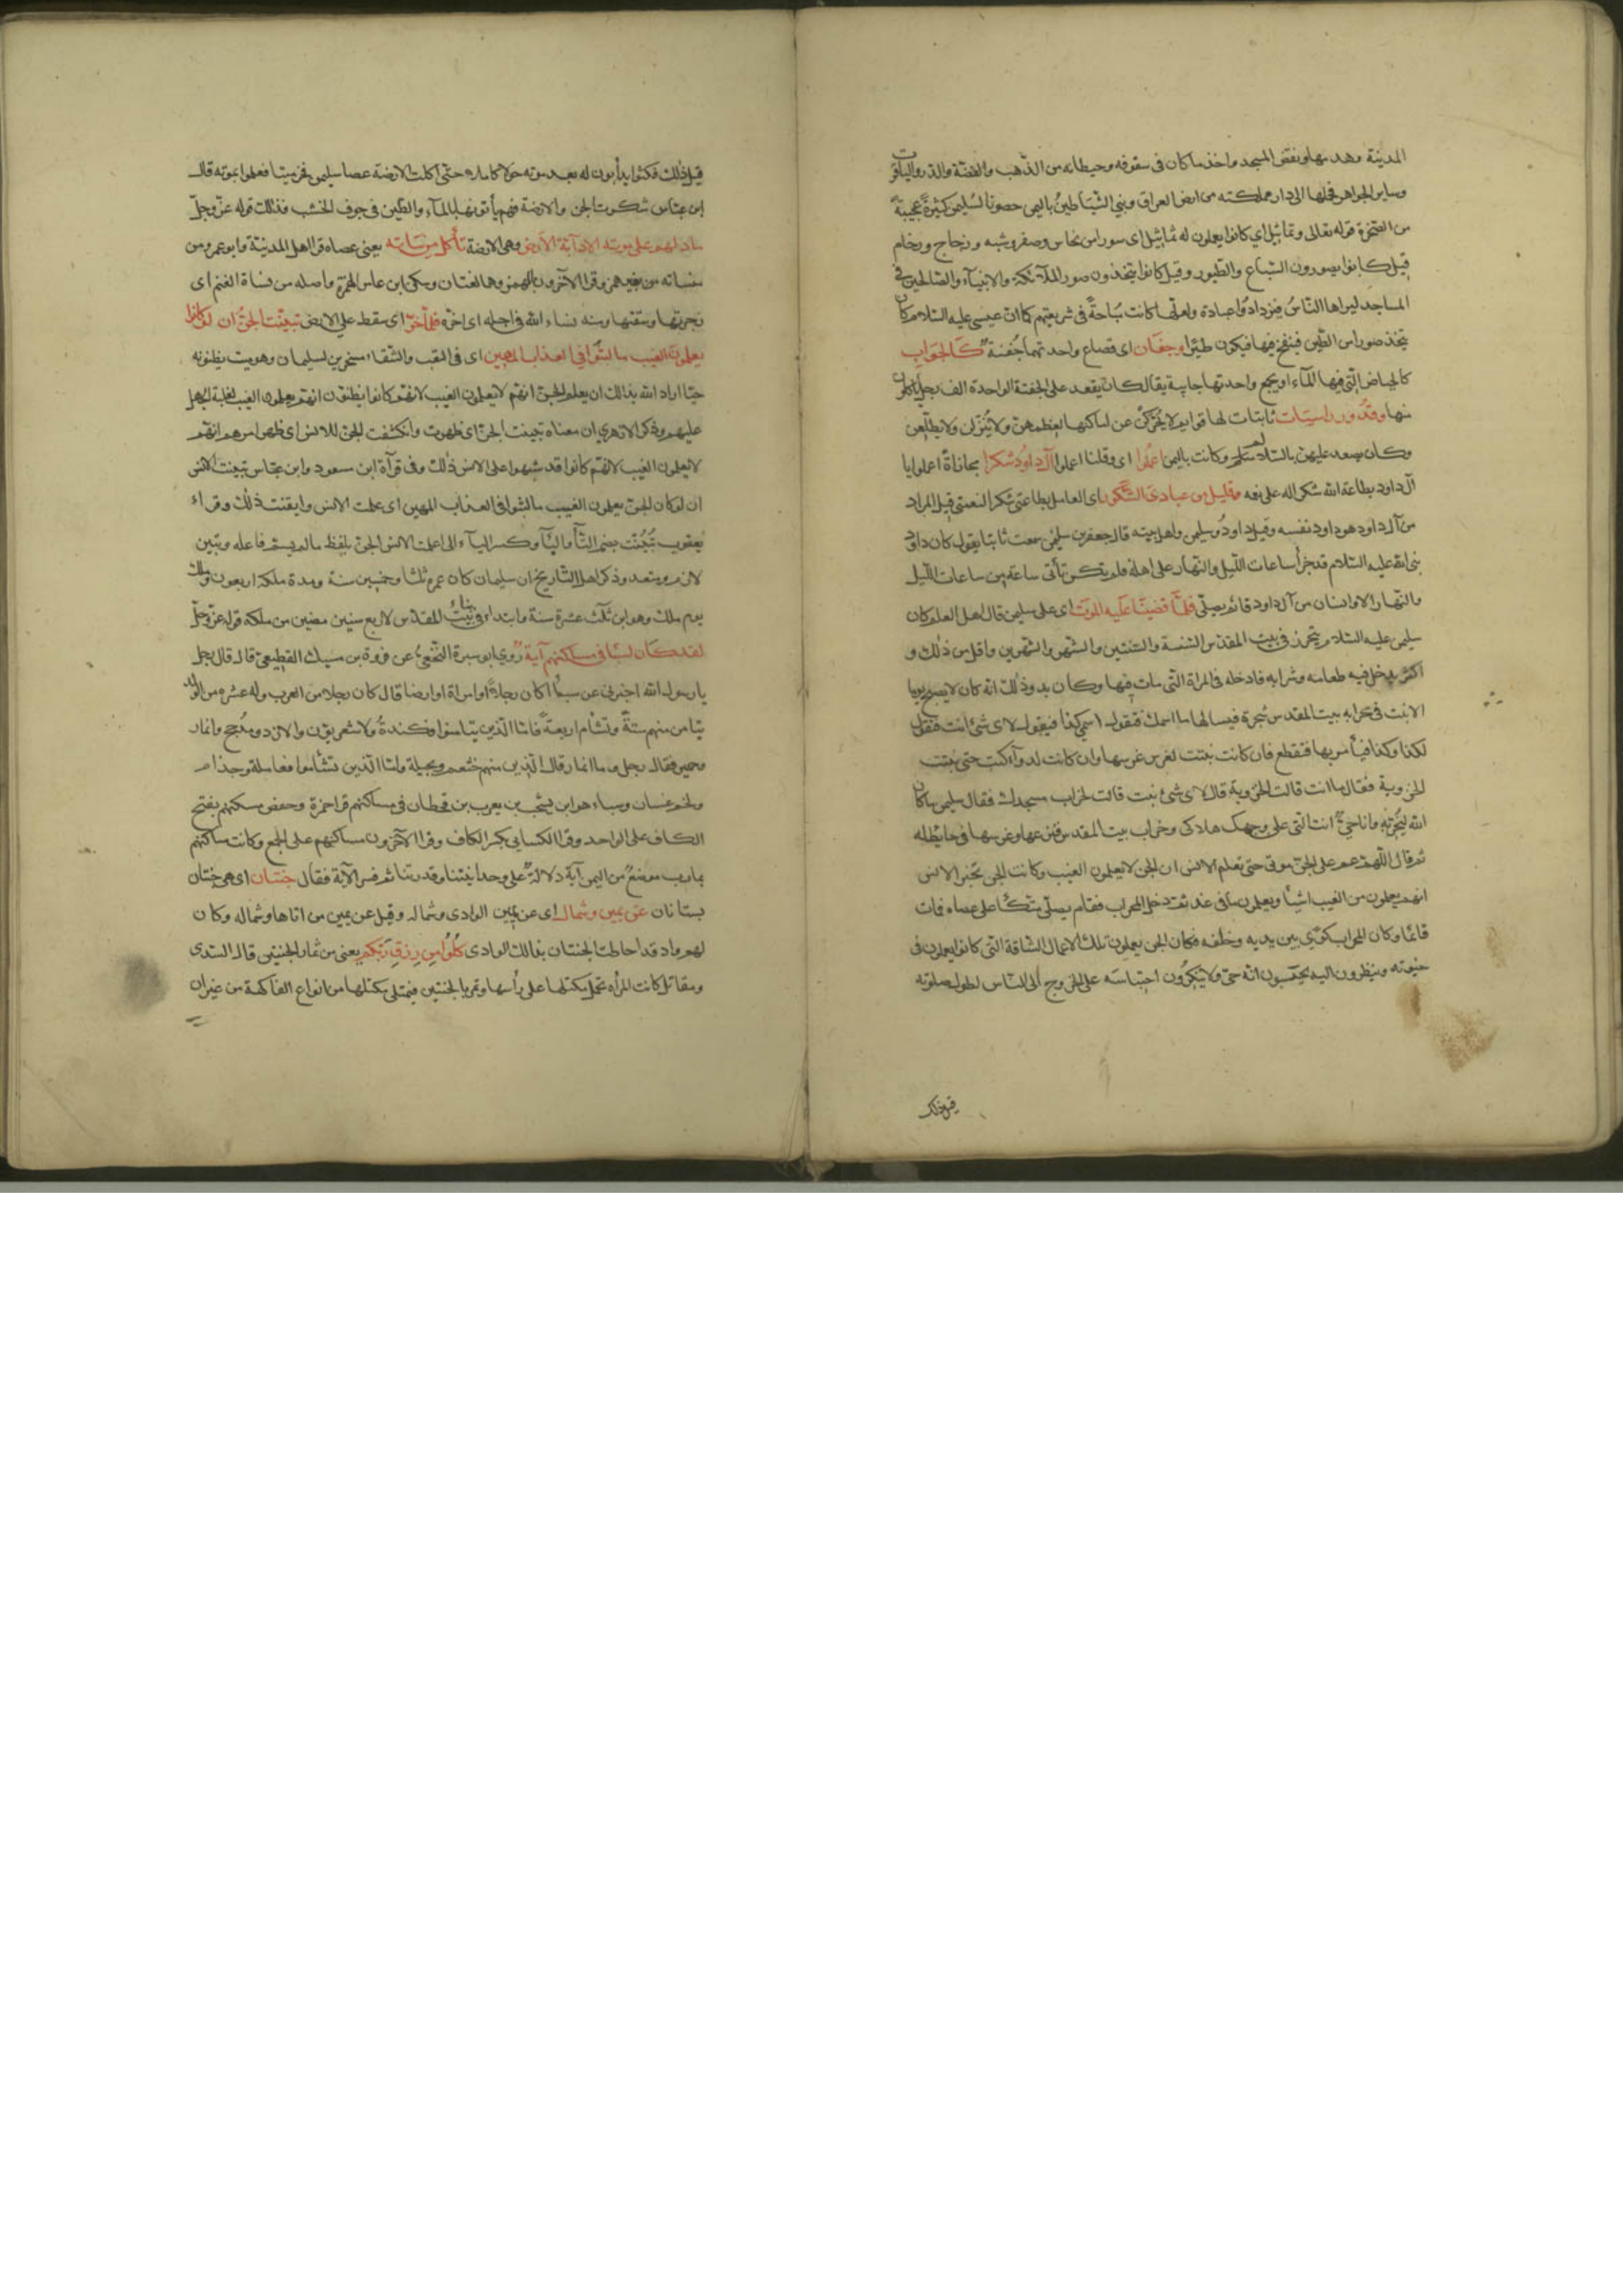 المدينة وهدمها ونقض المسجد واخذ ما كان في سقوفه وحيطانه من الذهب والفضة والدر والياقوت
وساير الجواهر فحملها الى دار مملكته من ارض العراق وبني الشياطين باليمن حصونا لسليمن كثيرة عجيبة
من الصخرة قوله تعالى وتماثيل اي كانوا يعملون له تماثيل اى صورا من نحاس وصفر وشبه وزجاج ورخام
قيل كانوا يصورون السباع والطيور وقيل كانوا يتخذون صور الملآئكة والانبيآء والصالحين في
المساجد ليراها الناس فيزدادوا عبادة ولعلها كانت مباحة في شريعتهم كما ان عيسى عليه السلام كان
يتخذ صورا من الطين فينفخ فيها فيكون طيرا وجفان اى قصاع واحدتهما جفنة كالجواب
كالحياض التي فيها المآء او يجمع واحدتها جابية يقال كان يقعد على الجفنة الواحدة الف رجل ياكلون
منها وقدور راسيات ثابتات لها قوايم لا يحركن عن اماكنها لعظمهن ولا ينزلن ولا يطلعن
وكان يصعد عليهن بالسلاليم وكانت باليمن اعملوا اى وقلنا اعملوا آل داود شكرا مجازاة اعملوا يا
آل داود بطاعة الله شكرا له على نعمه وقليل من عبادى الشكور اى العامل بطاعتى شكرا لنعمتي قيل المراد
من آل داود هو داود نفسه وقيل داود وسليمن واهل بيته قال جعفر بن سليمن سمعت ثابتا يقول كان داود
نبي الله عليه السلام قد جزأ ساعات الليل والنهار على اهله فلم تكن تأتى ساعة من ساعات الليل
والنهار الا وانسان من آل داود قائم يصلي فلما قضينا عليه الموت اى على سليمن قال اهل العلم كان
سليمن عليه السلام يتحرز في بيت المقدس السنة والسنتين والشهر والشهرين واقل من ذلك و
اكثر يدخل فيه طعامه وشرابه فادخله في المراة التي مات فيها وكان بدو ذلك انه كان لا يصبح يوما
الا نبت في محرابه بيت المقدس شجرة فيسالها ما اسمك فتقول اسمي كذا فيقول لاى شئ انت فتقول
لكذا وكذا فيأمر بها فتقطع فان كانت نبتت لغرس غرسها وان كانت لدوآء كتب حتى نبتت
الخروبة فقال ما انت قالت الخروبة قال لاى شئ نبت قالت لخراب مسجدك فقال سليمن ما كان
الله ليخربه وانا حي انت التى على وجهك هلاكى وخراب بيت المقدس فنزعها وغرسها في حايط له
ثم قال اللهم عم على الجن موتي حتى تعلم الانس ان الجن لا يعلمون الغيب وكانت الجن تخبر الانس
انهم يعلمون من الغيب اشيأ ويعلمون ما في غد ثم دخل المحراب فقام يصلي متكأ على عصاه فمات
قائما وكان للمحراب كوى بين يديه وخلفه فكان الجن يعملون تلك الاعمال الشاقة التى كانوا يعملون في
حيوته وينظرون اليه يحسبون انه حي ولا ينكرون احتباسه على الخروج الى الناس لطول صلوته
قبل ذلك
قبل ذلك فمكثوا يدأبون له بعد موته حولا كاملا حتى اكلت الارضة عصا سليمن فخر ميتا فعلموا بموته قال
ابن عباس شكرت الجن والارضة فهم يأتونها بالمآء والطين في جوف الخشب فذلك قوله عز وجل
ما دلهم على موته الا دآبة الارض وهى الارضة تأكل منساته يعنى عصاه قرا اهل المدينة وابو عمرو من
منساته من غير همز وقرا الآخرون بالهمز وهما لغتان وسكن ابن عامر الهمزة واصله من نساة الغنم اى
زجرتها وسقتها ومنه نساء الله في اجله اى اخره فلما خر اى سقط على الارض تبينت الجن ان لو كانوا
يعلمون الغيب ما لبثوا في العذاب المهين اى في التعب والشقاء مسخرين لسليمان وهو ميت يظنونه
حيا اراد الله بذالك ان يعلم الجن انهم لا يعلمون الغيب لانهم كانوا يظنون انهم يعلمون الغيب لغلبة الجهل
عليهم وذكر الازهري ان معناه تبينت الجن اى ظهرت وانكشفت الجن للانس اى ظهر امرهم انهم
لا يعلمون الغيب لانهم كانوا قد شبهوا على الانس ذلك وفى قرآة ابن مسعود وابن عباس تبينت الانس
ان لو كان الجن يعلمون الغيب ما لبثوا في العذاب المهين اى علمت الانس وايقنت ذلك وقراء
يعقوب تبينت بضم التأ والبأ وكسر اليآء اى اعلمت الانس الجن بلفظ ما لم يسم فاعله وتبين
لازم ومتعد وذكر اهل التاريخ ان سليمان كان عمره ثلثا وخمسين سنة ومدة ملكه اربعون وملك
يوم ملك وهو ابن ثلث عشرة سنة وابتداء في بناء بيت المقدس لاربع سنين مضين من ملكه قوله عز وجل
لقد كان لسبا في مساكنهم آية روي ابو سبرة النخعي عن فروة بن مسيك القطيعي قال قال رجل
يا رسول الله اخبرني عن سبأ اكان رجلا او امراة او ارضا قال كان رجلا من العرب وله عشرة من الولد
تيامن منهم ستة وتشأم اربعة فاما الذين تيامنوا فكندة والاشعريون والازد ومذحج وانمار
وحمير فقال رجل وما انمار قال الذين منهم خثعم وبجيلة واما الذين تشأموا فعاملة وجذام
ولخم وغسان وسباء هو ابن يشجب بن يعرب بن قحطان في مساكنهم قرا حمزة وحفص مسكنهم بفتح
الكاف على الواحد وقرا الكسايي بكسر الكاف وقرا الآخرون مساكنهم على الجمع وكانت مساكنهم
بمارب موضع من اليمن آية دلالة على وحدانيتنا وقدرتنا ثم فسر الآية فقال جنتان اى هى جنتان
بستانان عن يمين وشمال اى عن يمين الوادى وشماله وقيل عن يمين من اتاها وشماله وكان
لهم واد قد احاطت الجنتان بذالك الوادى كلوا من رزق ربكم يعنى من ثمار الجنتين قال السدى
ومقاتل كانت المرأه تحمل مكتلها على رأسها وتمر بالجنتين فيمتلى مكتلها من انواع الفاكهة من غير ان